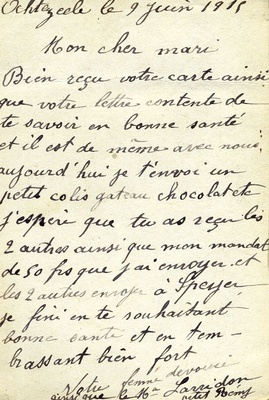 Ochtezeele le 9 juin 1915
Mon cher mari
Bien reçu votre carte ainsi
que votre lettre contente de
te savoir en bonne santé
et il est de même avec nous
aujourd'hui je t'envoi un
petit colis gateau chocolat etc
j'espère que tu as reçu les
2 autres ainsi que mon mandat
de 50 frs que j'ai envoyer et
les 2 autres envoyer à Speyer
je fini en te souhaitant
bonne santé et en t'em-
brassant bien fort
Votre femme dévouée
ainsi que le Larridon
petit